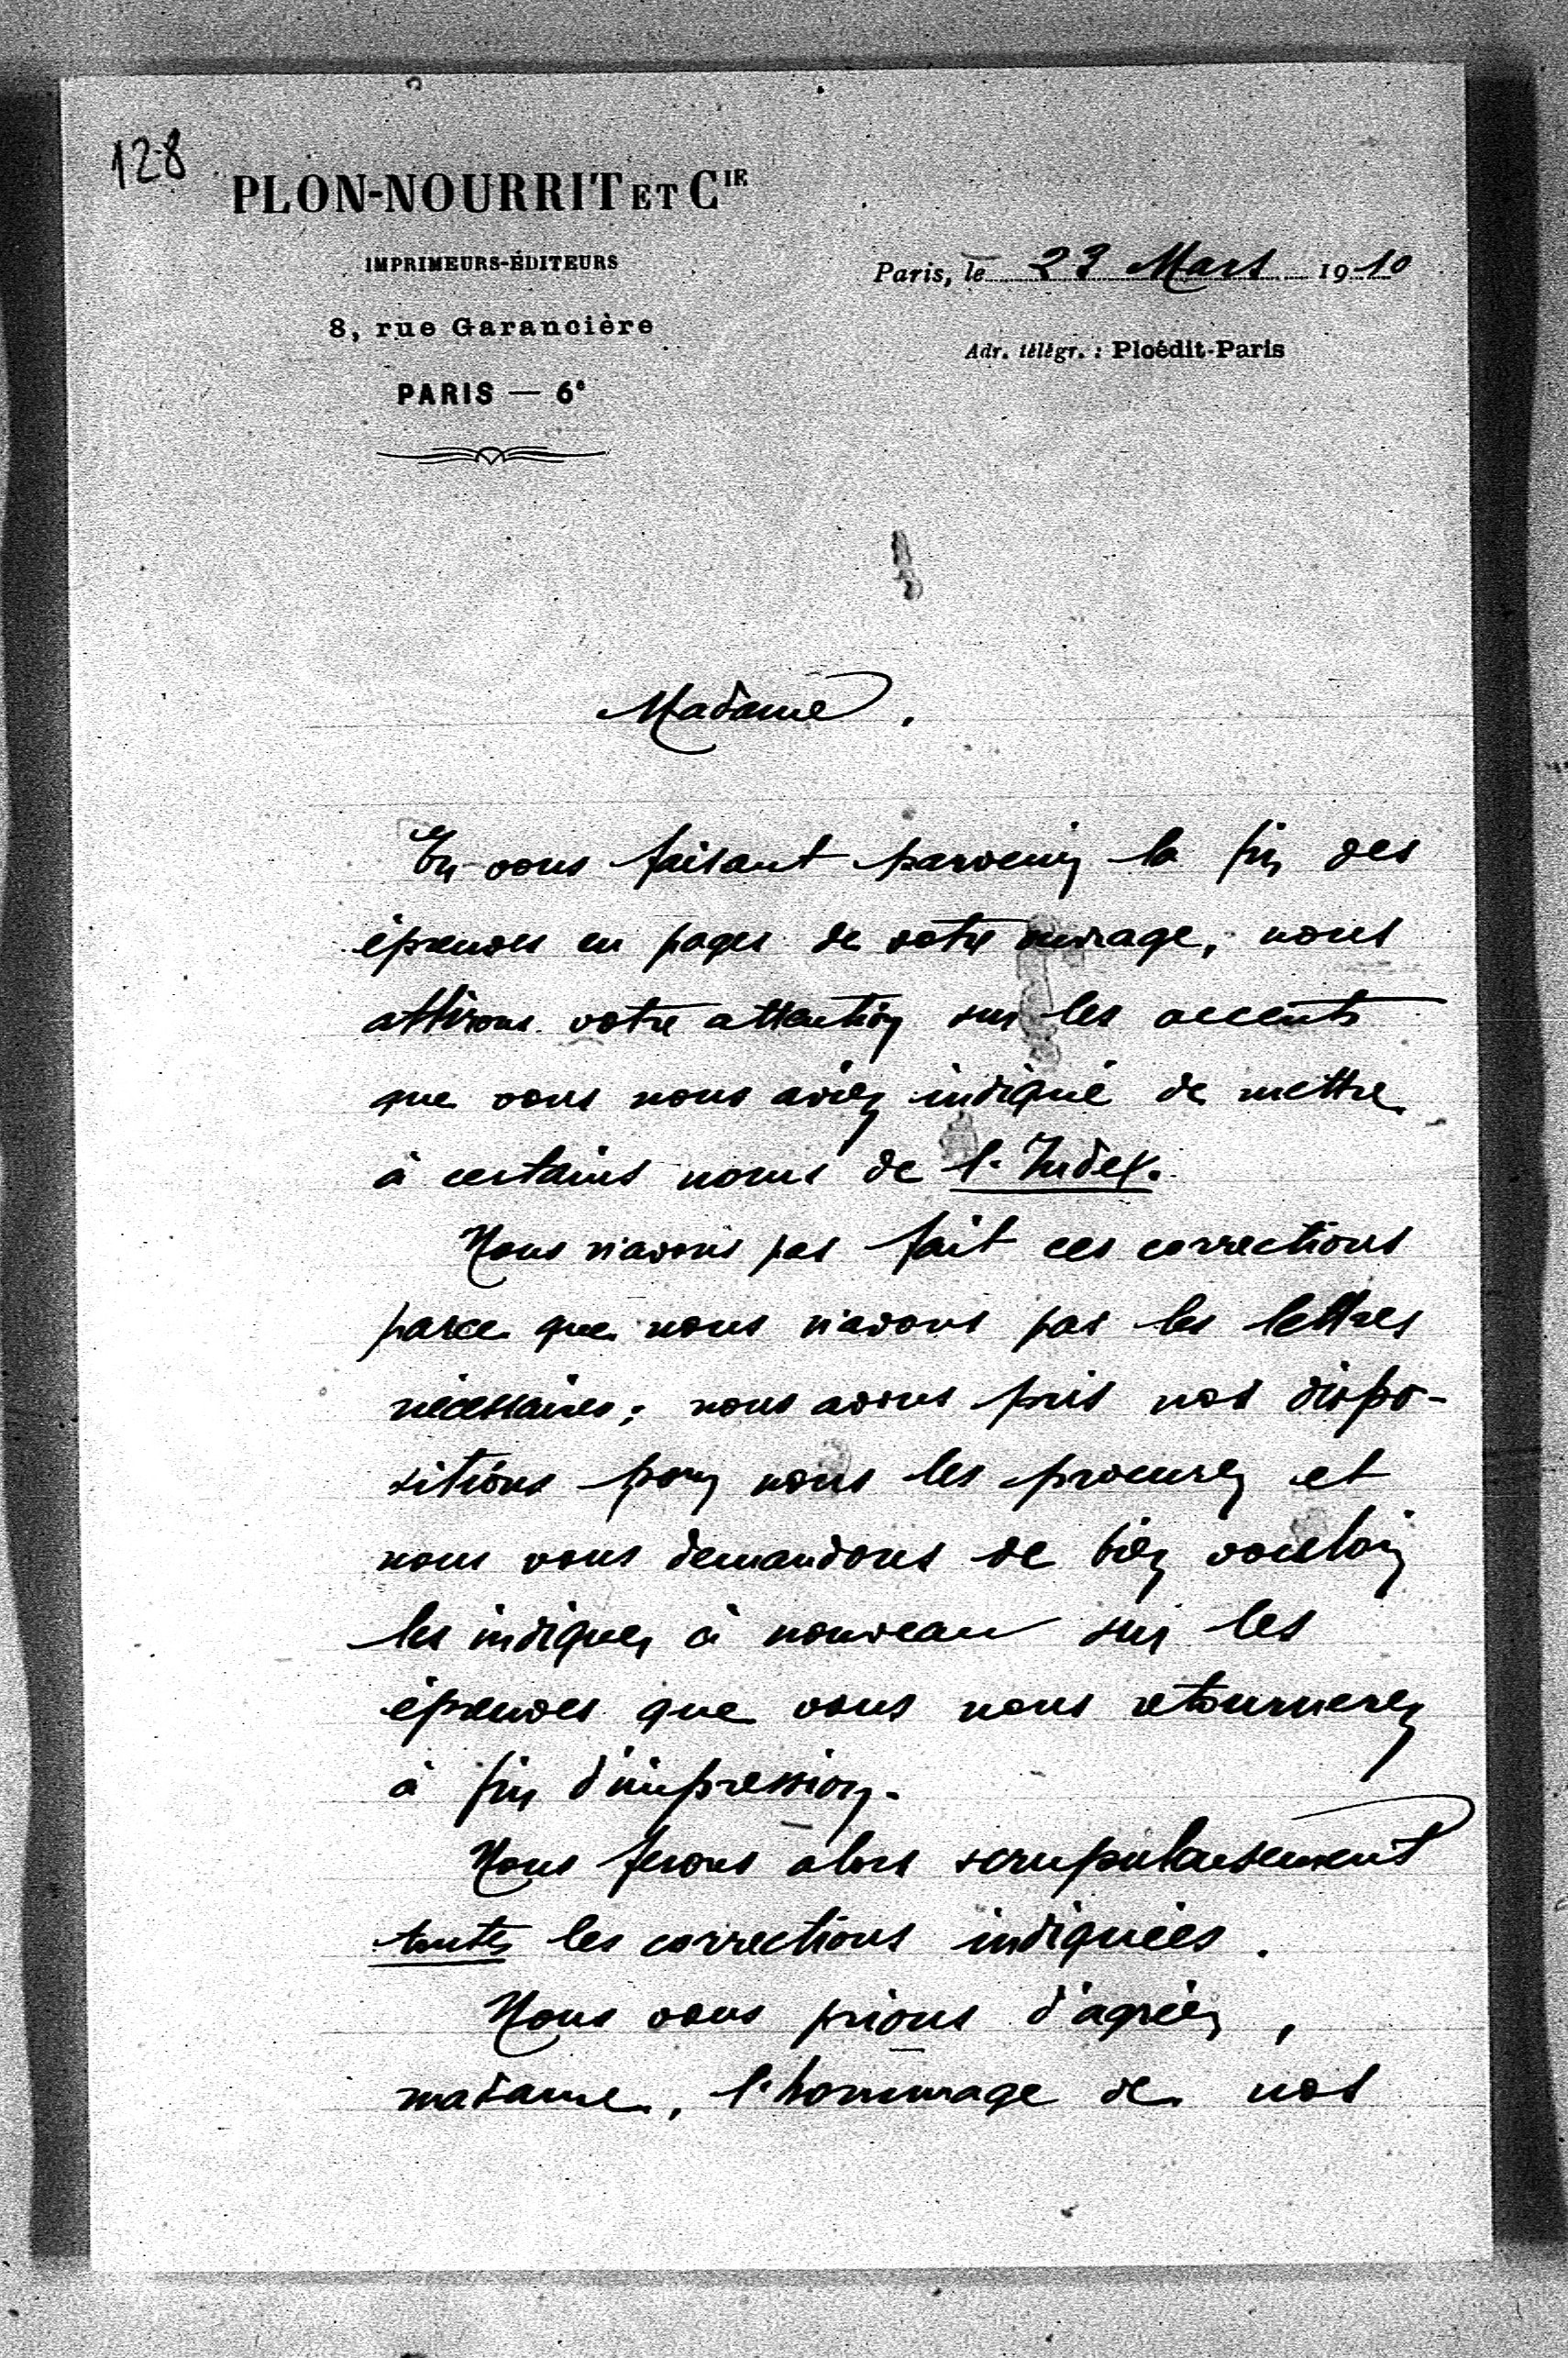 128
PLON-NOURRIT ET CIE
IMPRIMEURS-ÉDITEURS
8, rue Garancière
PARIS — 6e
Paris, le 23 Mars 1910
Adr. télégr. : Ploédit-Paris
Madame,
En vous faisant parvenir la fin des
épreuves en pages de votre ouvrage, nous
attirons votre attention sur les accents
que vous nous aviez indiqué de mettre
à certains noms de l'Index.
Nous n'avons pas fait ces corrections
parce que nous n'avons pas les lettres
nécessaires; nous avons pris nos dispo-
sitions pour nous les procurer et
nous vous demandons de bien vouloir
les indiquer à nouveau sur les
épreuves que vous nous retournerez
à fin d'impression.
Nous ferons alors scrupuleusement
toutes les corrections indiquées.
Nous vous prions d'agréer,
madame, l'hommage de nos